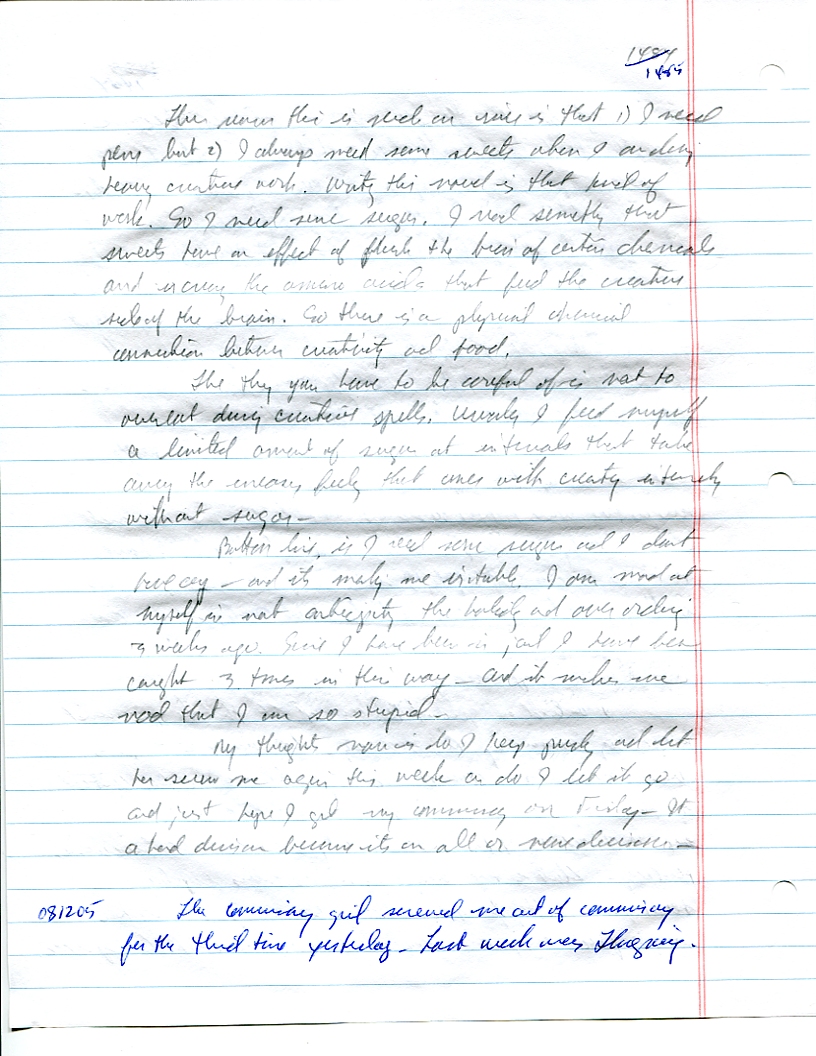 1484
1485
The reason this is such an issue is that 1) I need
pens but 2) I always need some sweets when I am doing
heavy creative work. Writing this novel is that kind of
work. So I need some sugar. I read something that
sweets have an effect of flush the brain of certain chemicals
and increase the amino acids that feed the creative
side of the brain. So there is a physical chemical
connection between creativity and food.
The thing you have to be careful of is not to
overeat during creative spells. Usually I feed myself
a limited amount of sugar at intervals that take
away the uneasy feeling that comes with creating intensely
without sugar -
Bottom line, is I need some sugar and I don't
have any - and it's making me irritable. I am mad at
myself in not anticipating the holiday and over ordering
3 weeks ago. Since I have been in jail I have been
caught 3 times in this way - and it makes me
mad that I am so stupid -
My thoughts now is do I keep pushing and let
her screw me again this week or do I let it go
and just hope I get my commissary on Friday - It
a hard decision because its an all or none decision -
081205 The commissary girl screwed me out of commissary
for the third time yesterday - Last week was Thanksgiving.